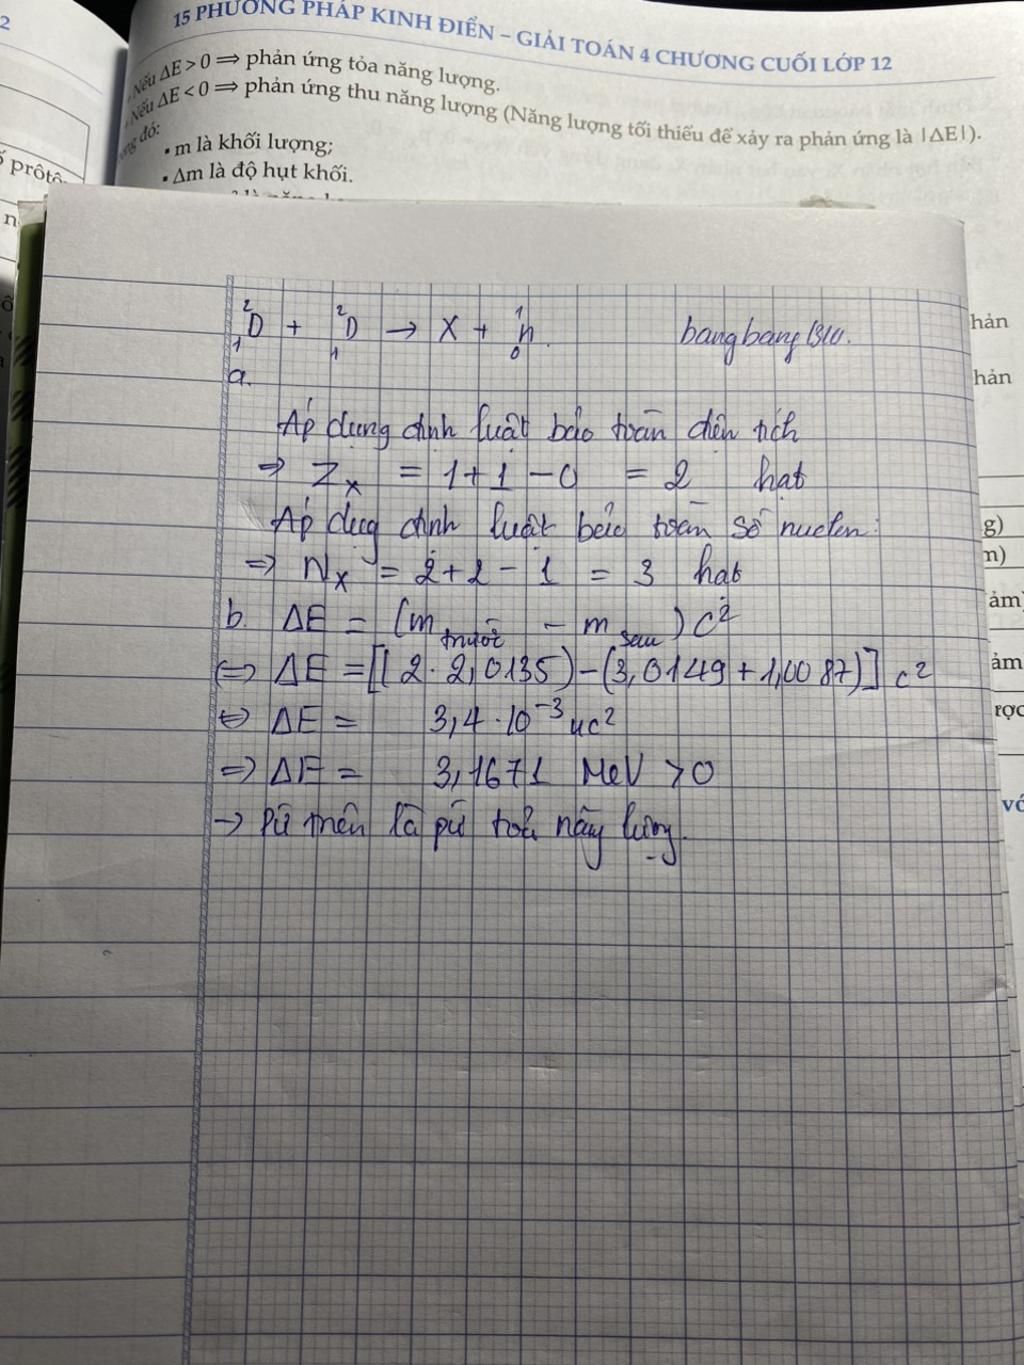 2
15 PHƯƠNG PHÁP KINH ĐIỂN – GIẢI TOÁN 4 CHƯƠNG CUỐI LỚP 12
Nếu ΔE > 0 ⟹ phản ứng tỏa năng lượng.
Nếu ΔE < 0 ⟹ phản ứng thu năng lượng (Năng lượng tối thiểu để xảy ra phản ứng là |ΔE|).
đó:
▪ m là khối lượng;
▪ Δm là độ hụt khối.
prôtô
n
²₁D + ²₁D → X + ¹₀n.
bangbang1310.
hản
a.
hản
Áp dụng định luật bảo toàn điện tích
⇒ Z_X = 1+1−0 = 2 hạt
Áp dụg định luật bảo toàn số nuclen:
g)
m)
⇒ N_X = 2+2−1 = 3 hạt
b. ΔE = (m_trước − m_sau) c²
ảm)
⇔ ΔE = [(2·2,0135)−(3,0149+1,0087)] c²
ảm
⇔ ΔE = 3,4·10⁻³ uc²
rợc
⇒ ΔE = 3,1671 MeV > 0
→ Pứ trên là pứ toả năng lượng.
vớ